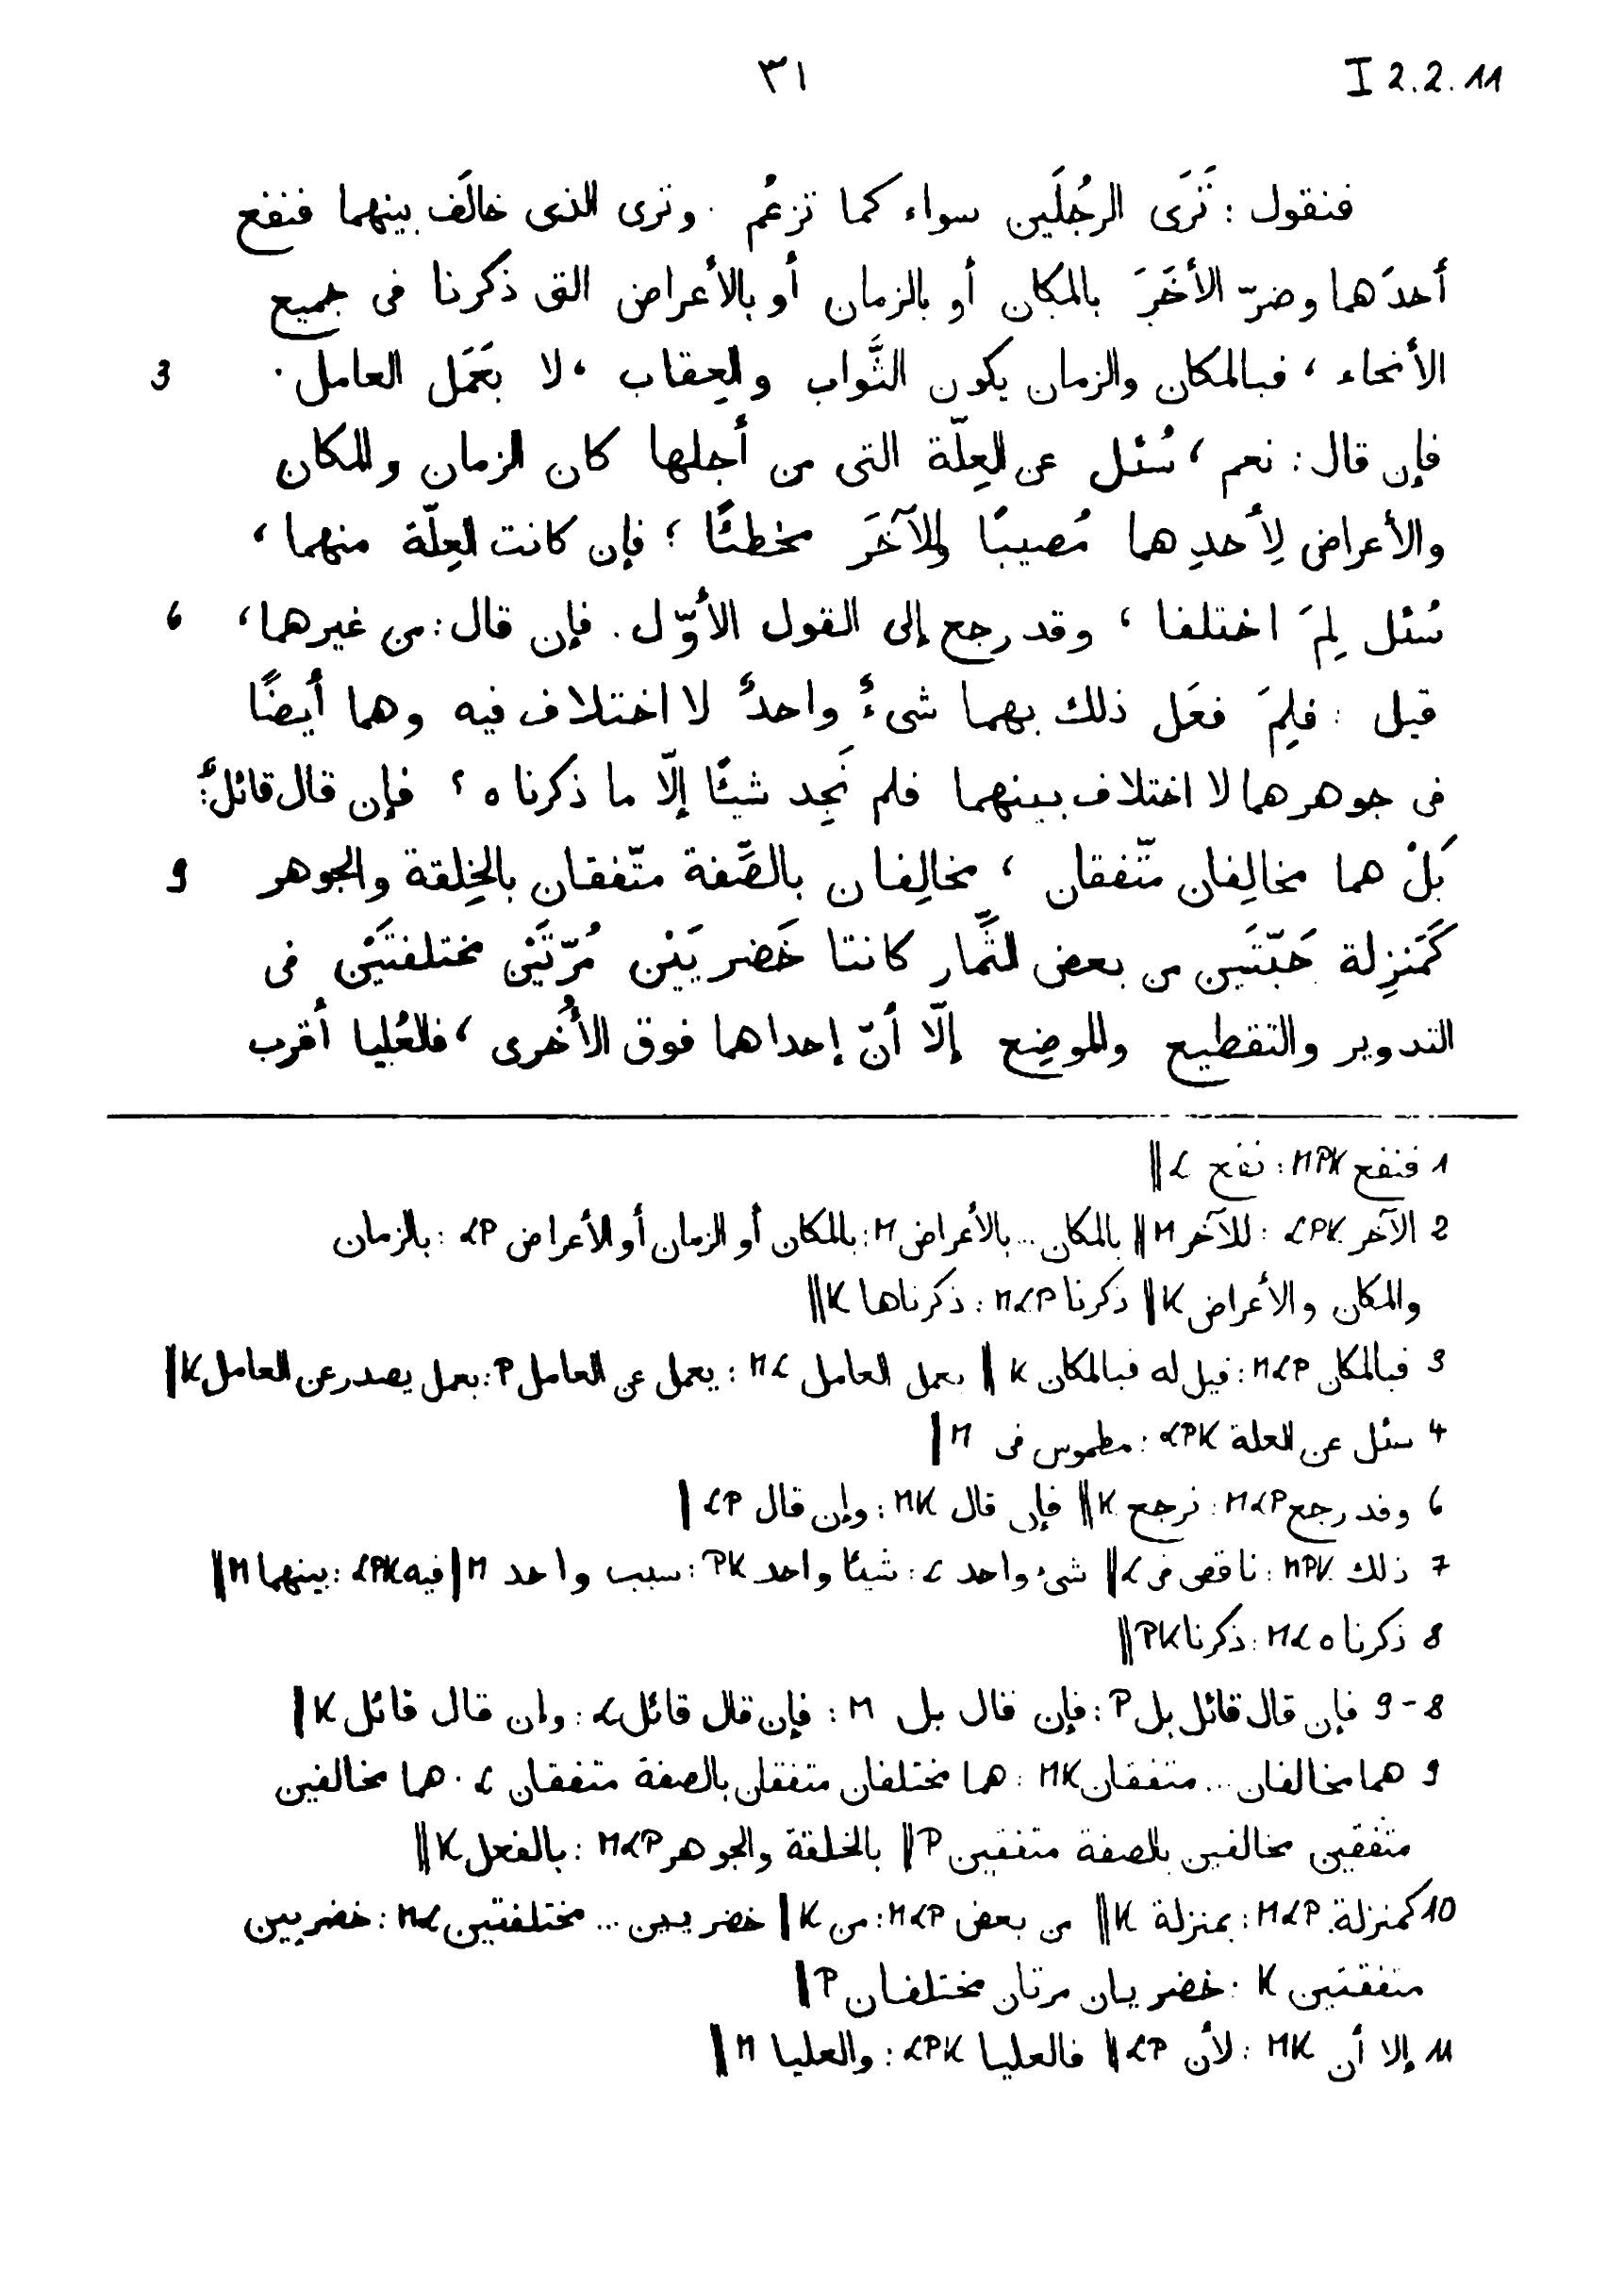 ٣١ I 2.2.11
فنقول : تَرَى الرجُلَين سواء كما تزعُم . وترى الذى خالَف بينهما فنفع
أحدَهما وضرّ الأخَرَ بالمكان أو بالزمان أو بالأعراض التى ذكرنا فى جميع
الأنحاء ، فبالمكان والزمان يكون الثَّواب والعِقاب ، لا بعَمَل العامل . 3
فإن قال : نعم ، سُئل عن العِلّة التى من أجلها كان الزمان والمكان
والأعراض لِأحدِهما مُصيبًا وللآخَرَ مخطئًا ؛ فإن كانت العِلّة منهما ،
سُئل لِمَ اختلفا ، وقد رجع إلى القول الأوّل . فإن قال : من غيرهما ، 6
قيل : فلِمَ فعَل ذلك بهما شىءٌ واحدٌ لا اختلاف فيه وهما أيضًا
فى جوهرهما لا اختلاف بينهما فلم نَجِد شيئًا إلّا ما ذكرناه ؟ فإن قال قائلٌ :
بَلْ هما مخالِفان متّفقان ، مخالِفان بالصَّفة متّفقان بالخِلقة والجوهر 9
كَمَنزِلة حَبّتَين من بعض الثَّمار كانتا خَضريَيْن مُرّتَيْن مختلفتَيْن فى
التدوير والتقطيع والموضِع إلّا أنّ إحداهما فوق الأُخرى ، فالعُليا أقرب
1 فنفع MPK : نفع L ||
2 الآخر LPK : للآخر M || بالمكان ... بالأعراض M : بالمكان أو الزمان أو الأعراض LP : بالزمان
والمكان والأعراض K || ذكرنا MLP : ذكرناها K ||
3 فبالمكان MLP : قيل له فبالمكان K || بعمل العامل ML : يعمل عن العامل P : بعمل يصدر عن العامل K |
4 سئل عن العلة LPK : مطموس فى M |
6 وقد رجع MLP : نرجع K || فإن قال MK : وإن قال LP |
7 ذلك MPK : ناقص فى L || شىء واحد L : شيئا واحد PK : سبب واحد M | فيه LPK : بينهما M ||
8 ذكرناه ML : ذكرنا PK ||
8-9 فإن قال قائل بل P : فإن قال بل M : فإن قال قائل L : وان قال قائل K |
9 هما مخالفان ... متفقان MK : هما مختلفان متفقان بالصفة متفقان L . هما مخالفين
متفقين مخالفين بالصفة متفقين P || بالخلقة والجوهر MLP : بالفعل K ||
10 كمنزلة MLP : بمنزلة K || من بعض MLP : من K | خضريين ... مختلفتين ML : خضريين
متفقتين K : خضريان مرتان مختلفان P |
11 إلا أن MK : لأن LP || فالعليا LPK : والعليا M |